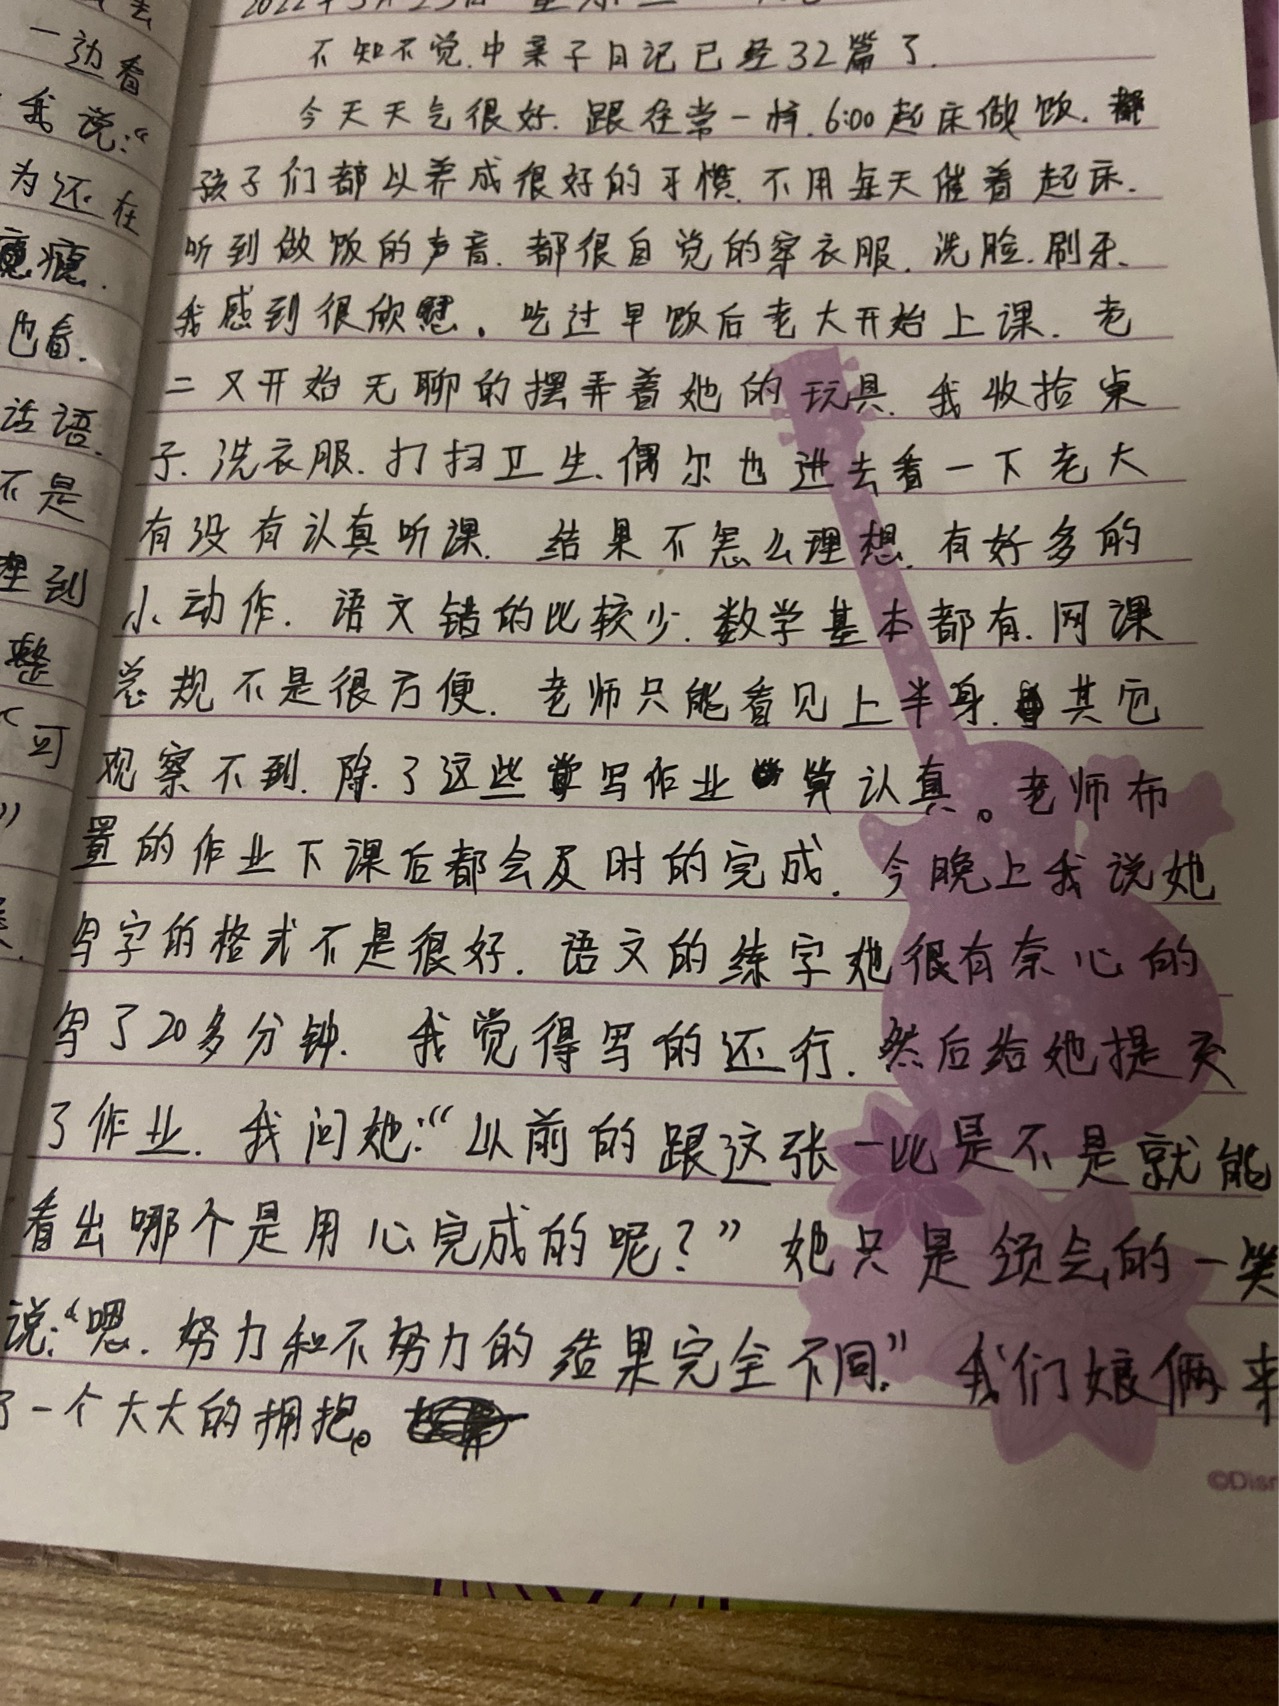 一边看
我说:“
为还在
瘾.
也看.
话语.
不是
到
整
“可
不知不觉.中亲子日记已经32篇了.
今天天气很好.跟往常一样.6:00起床做饭.
孩子们都以养成很好的习惯.不用每天催着起床.
听到做饭的声音.都很自觉的穿衣服.洗脸.刷牙.
我感到很欣慰。吃过早饭后老大开始上课.老
二又开始无聊的摆弄着她的玩具.我收拾桌
子.洗衣服.打扫卫生.偶尔也进去看一下老大
有没有认真听课.结果不怎么理想.有好多的
小动作.语文错的比较少.数学基本都有.网课
总规不是很方便.老师只能看见上半身.其它
观察不到.除了这些写作业算认真。老师布
置的作业下课后都会及时的完成.今晚上我说她
写字的格式不是很好.语文的练字她很有奈心的
写了20多分钟.我觉得写的还行.然后给她提交
了作业.我问她:“以前的跟这张一比是不是就能
看出哪个是用心完成的呢?”她只是领会的一笑
说:“嗯.努力和不努力的结果完全不同.”我们娘俩来
了一个大大的拥抱。